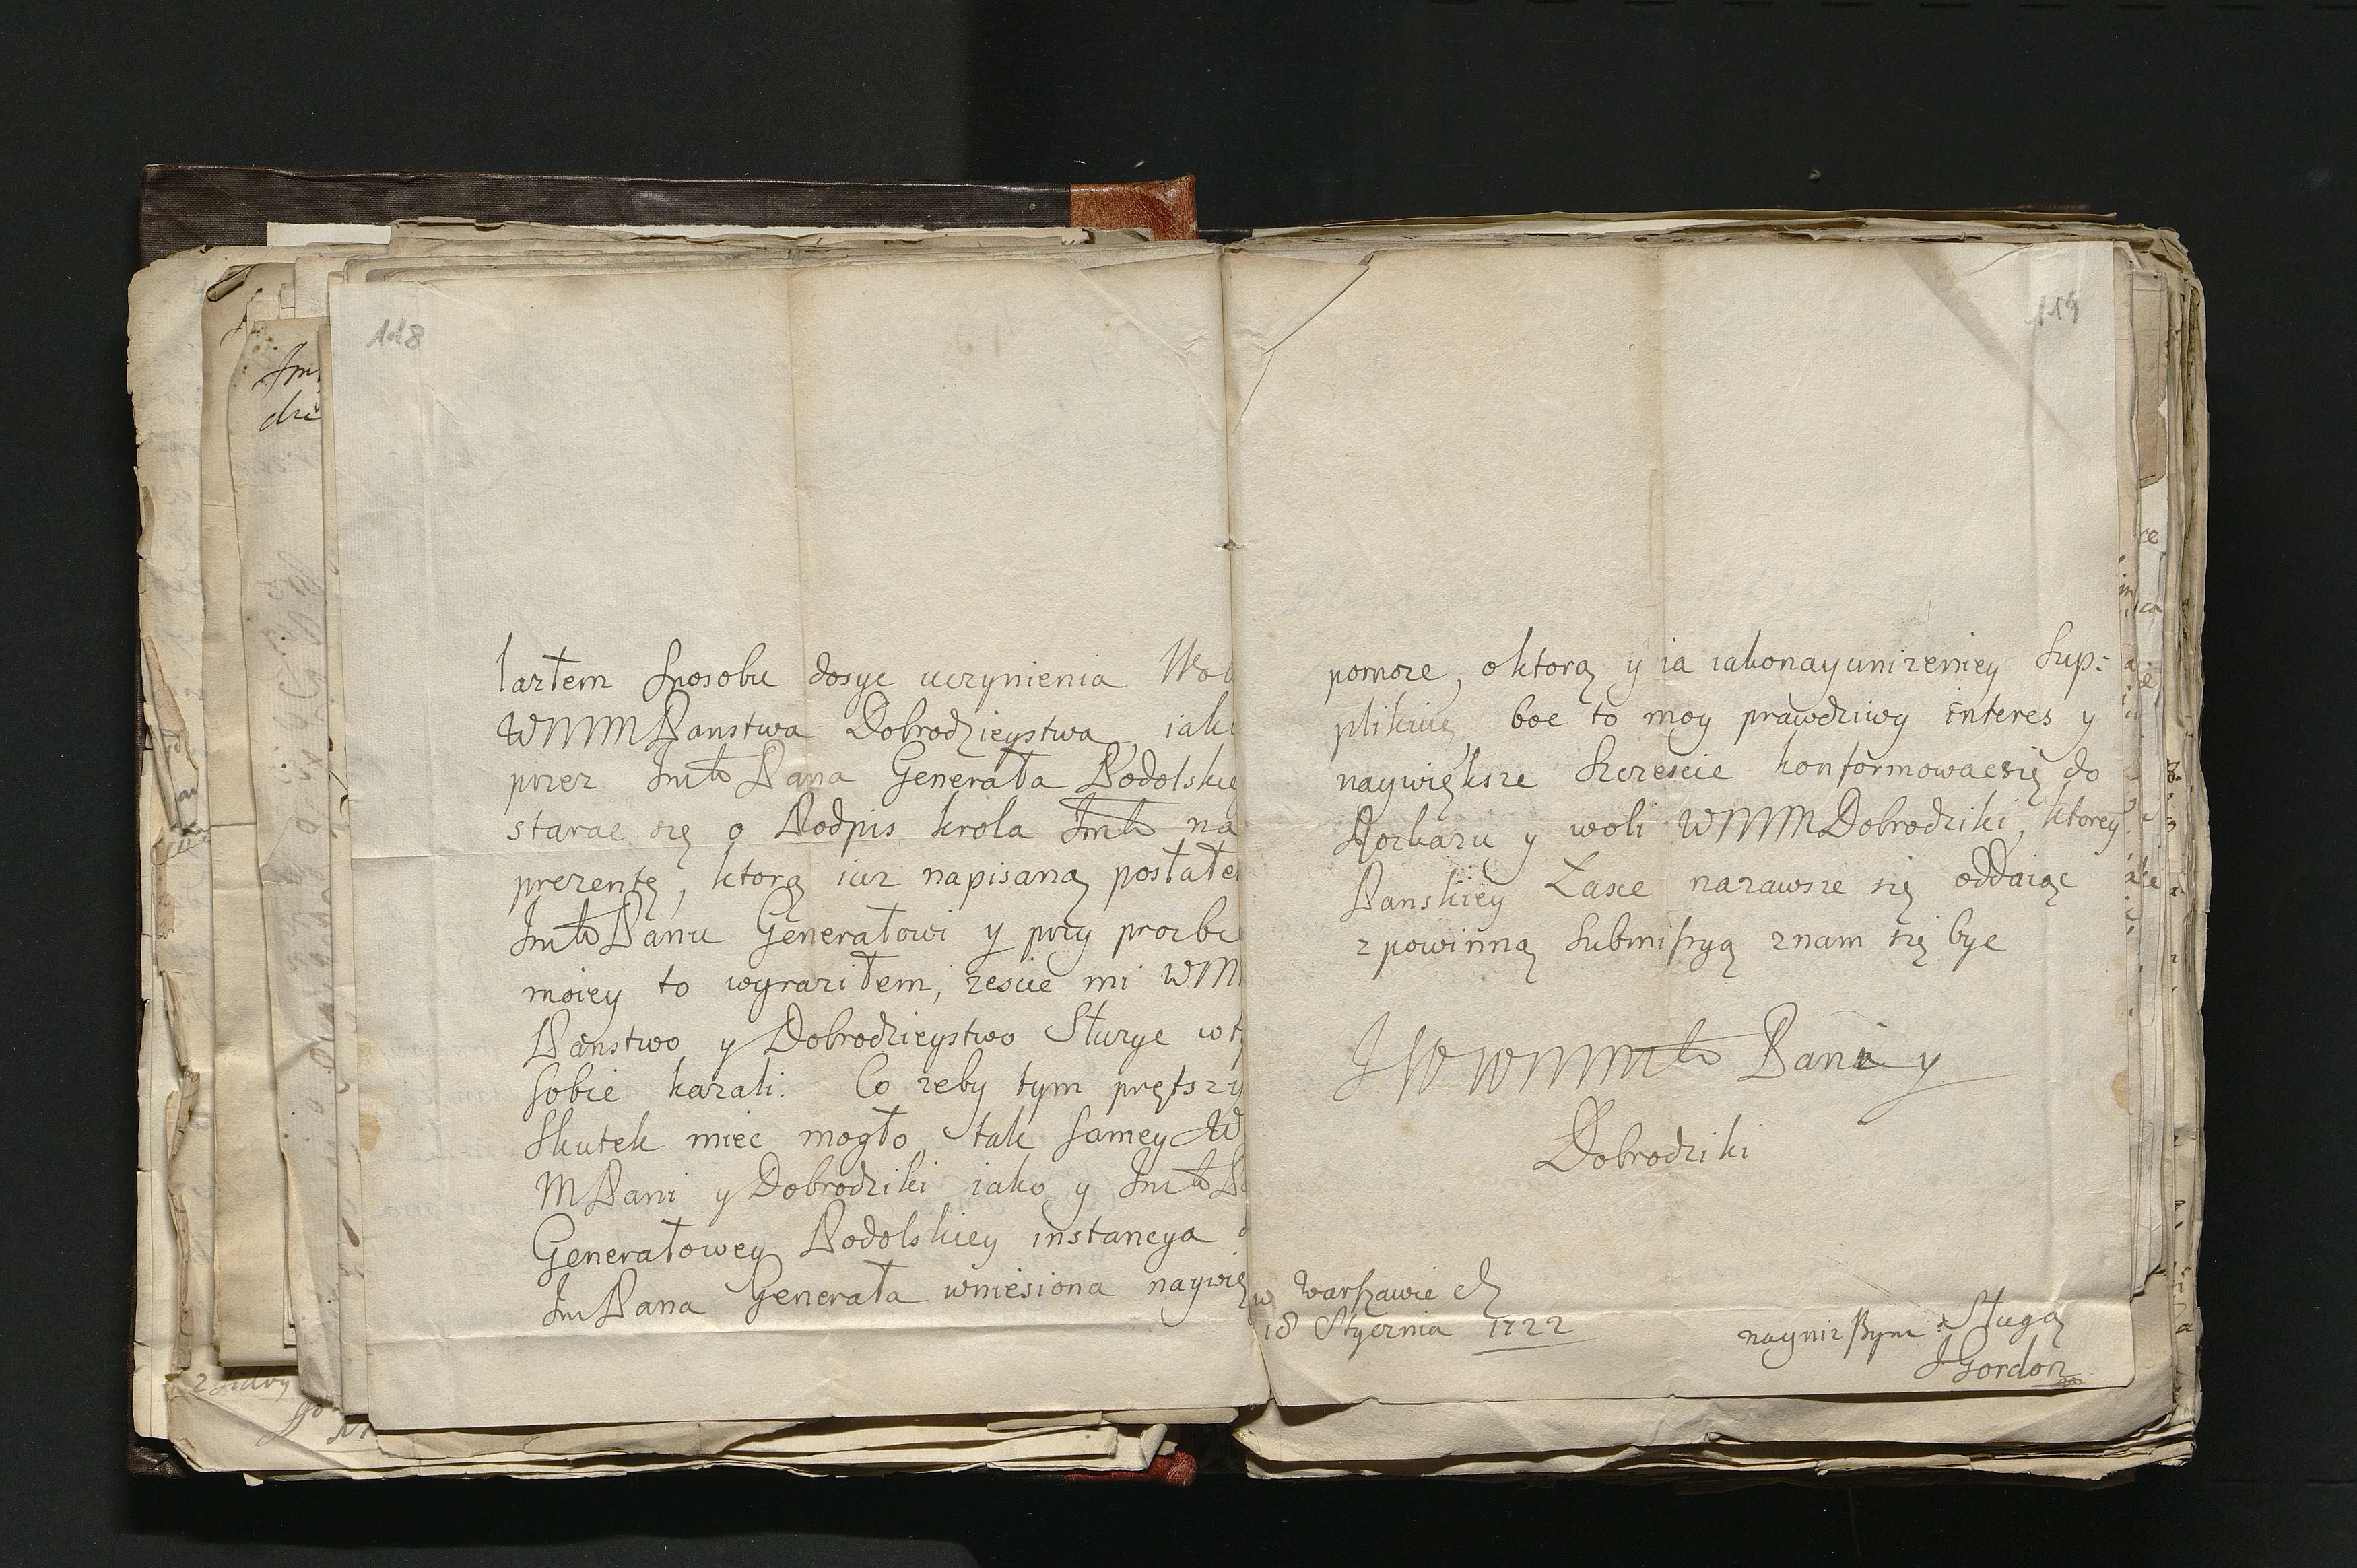 118
lazłem sposobu dosyc uczynienia Wol
WMMPanstwa Dobrodzieystwa, iak
przez Jmć Pana Generała Podolskie
starac się o Podpis krola Jmć na
prezentę, ktorą iuz napisaną posłałe
Jmć Panu Generałowi y przy prozbie
moiey to wyraziłem, zescie mi WM
Państwo y Dobrodzieystwo Słuzyc wt
sobie kazali. Co zeby tym prętszy
Skutek miec mogło, tak samey W
MPani y Dobrodziki iako y Jmć P
Generałowey Podolskiey instancya
Jm Pana Generała wniesiona naywię
119
pomoze, oktorą y ia iakonayunizeniey Sup:
plikuię, boc to moy prawdziwy interes y
naywiększe Szczescie konformowacsię do
Rozkazu y woli WMMDobrodziki, ktorey
Panskiey Łasce nazawsze się oddaiąc
z powinną Submissyą znam się byc
JWWMMMć Pani y
Dobrodziki
w Warszawie d
18 Stycznia 1722
nayniższym Sługą
JGordon